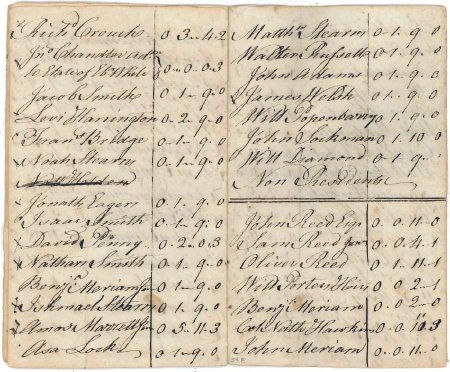 Rich.d Crouch 0 3 - 4 2
Jno Chandler Adm
to Estate of Eb White 0 - 0 - 0 3
Jacob Smith 0 - 1 - 9 - 0
Levi Harrington 0 - 2 - 9 - 0
Fran.s Bridge 0 - 1 - 9 - 0
Noah Stearns 0 - 1 - 9 - 0
Holden
Jonath Eager 0 - 1 - 9 - 0
Isaac Smith 0 - 1 - 9 - 0
David Penny 0 - 2 - 0 - 3
Nathan Smith 0 - 1 - 9 - 0
Benj.n Meriam 0 - 1 - 9 - 0
Ishmael Stearns 0 - 1 - 9 - 0
Amos Marrett 0 - 5 - 11 - 3
Asa Locke 0 - 1 - 9 - 0
Matthw Stearns 0 - 1 - 9 0
Walter Russell 0 - 1 - 9 0
John Adams 0 - 1 - 9 0
James Welsh 0 - 1 - 9 0
Will 0 1 - 9 0
John 0 1 10 0
Will Diamond 0 1 - 9
Non Residents
John Reed Esq 0 - 0 11 - 0
Sam Reed Jun 0 - 0 4 1
Oliver Reed 0 1 11 1
Will Porter Heirs 0 0 2 - 1
Benj. Meriam 0 0 2 - 0
Nath Hawkins 0 0 11 0 3
John Meriam 0 . 0 11 . 0